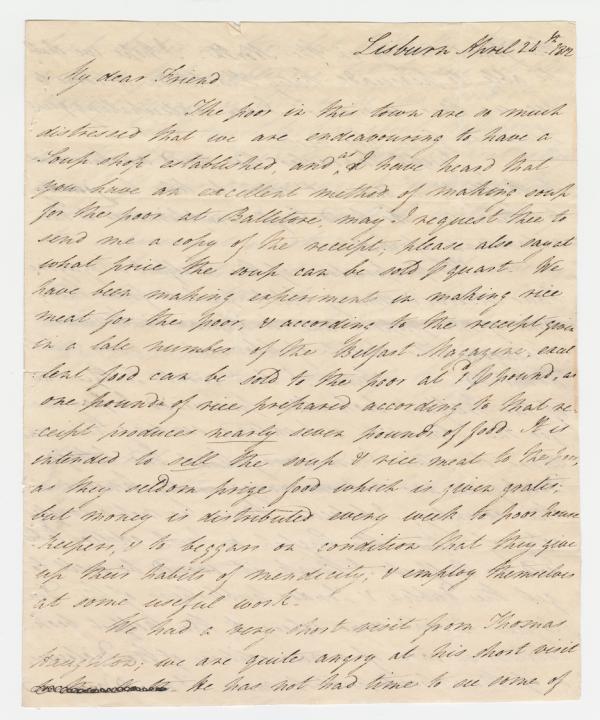 Lisburn April 24th 1812
My dear Friend
The poor in this town are so much
distressed that we are endeavouring to have a
Soup shop established, and, as I have heard that
you have an excellent method of making soup
for the poor at Ballitore, may I request thee to
send me a copy of the receipt; please also say at
what price the soup can be sold ⅌ quart. We
have been making experiments in making rice
meat for the poor, & according to the receipt given
in a late number of the Belfast Magazine, excel
lent food can be sold to the poor at 1d ⅌ pound, as
one pound of rice prepared according to that re-
ceipt produces nearly seven pounds of food. It is
intended to sell the soup & rice meat to the poor,
as they seldom prize food which is given gratis,
but money is distributed every week to poor house
keepers, & to beggars on condition that they give
up their habits of mendicity, & employ themselves
at some useful work.
We had a very short visit from Thomas
Haughton; we are quite angry at his short visit
He has not had time to see some of